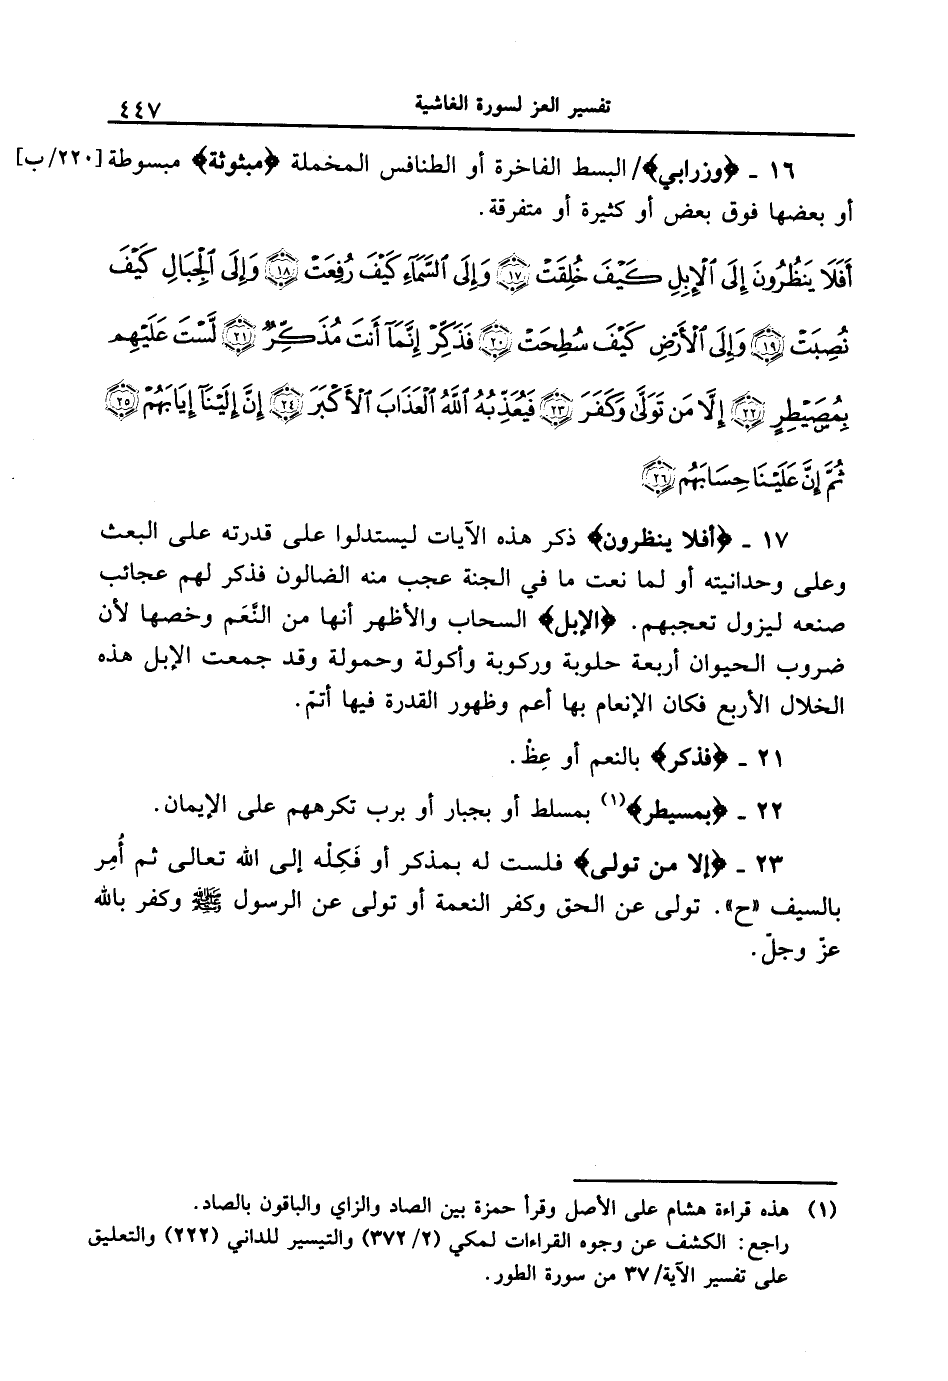 تفسير العز لسورة الغاشية ٤٤٧
١٦ ـ ﴿وزرابي﴾/ البسط الفاخرة أو الطنافس المخملة ﴿مبثوثة﴾ مبسوطة [٢٢٠/ ب]
أو بعضها فوق بعض أو كثيرة أو متفرقة.
أَفَلَا يَنظُرُونَ إِلَى ٱلْإِبِلِ كَيْفَ خُلِقَتْ ١٧ وَإِلَى ٱلسَّمَآءِ كَيْفَ رُفِعَتْ ١٨ وَإِلَى ٱلْجِبَالِ كَيْفَ
نُصِبَتْ ١٩ وَإِلَى ٱلْأَرْضِ كَيْفَ سُطِحَتْ ٢٠ فَذَكِّرْ إِنَّمَآ أَنتَ مُذَكِّرٌ ٢١ لَّسْتَ عَلَيْهِم
بِمُصَيْطِرٍ ٢٢ إِلَّا مَن تَوَلَّىٰ وَكَفَرَ ٢٣ فَيُعَذِّبُهُ ٱللَّهُ ٱلْعَذَابَ ٱلْأَكْبَرَ ٢٤ إِنَّ إِلَيْنَآ إِيَابَهُمْ ٢٥
ثُمَّ إِنَّ عَلَيْنَا حِسَابَهُم ٢٦
١٧ ـ ﴿أفلا ينظرون﴾ ذكر هذه الآيات ليستدلوا على قدرته على البعث
وعلى وحدانيته أو لما نعت ما في الجنة عجب منه الضالون فذكر لهم عجائب
صنعه ليزول تعجبهم. ﴿الإبل﴾ السحاب والأظهر أنها من النَّعَم وخصها لأن
ضروب الحيوان أربعة حلوبة وركوبة وأكولة وحمولة وقد جمعت الإبل هذه
الخلال الأربع فكان الإنعام بها أعم وظهور القدرة فيها أتمّ.
٢١ ـ ﴿فذكر﴾ بالنعم أو عِظْ.
٢٢ ـ ﴿بمسيطر﴾(١) بمسلط أو بجبار أو برب تكرههم على الإيمان.
٢٣ ـ ﴿إلا من تولى﴾ فلست له بمذكر أو فَكِلْه إلى الله تعالى ثم أُمِر
بالسيف «ح». تولى عن الحق وكفر النعمة أو تولى عن الرسول ﷺ وكفر بالله
عزّ وجلّ.
(١) هذه قراءة هشام على الأصل وقرأ حمزة بين الصاد والزاي والباقون بالصاد.
راجع: الكشف عن وجوه القراءات لمكي (٢/ ٣٧٢) والتيسير للداني (٢٢٢) والتعليق
على تفسير الآية/ ٣٧ من سورة الطور.